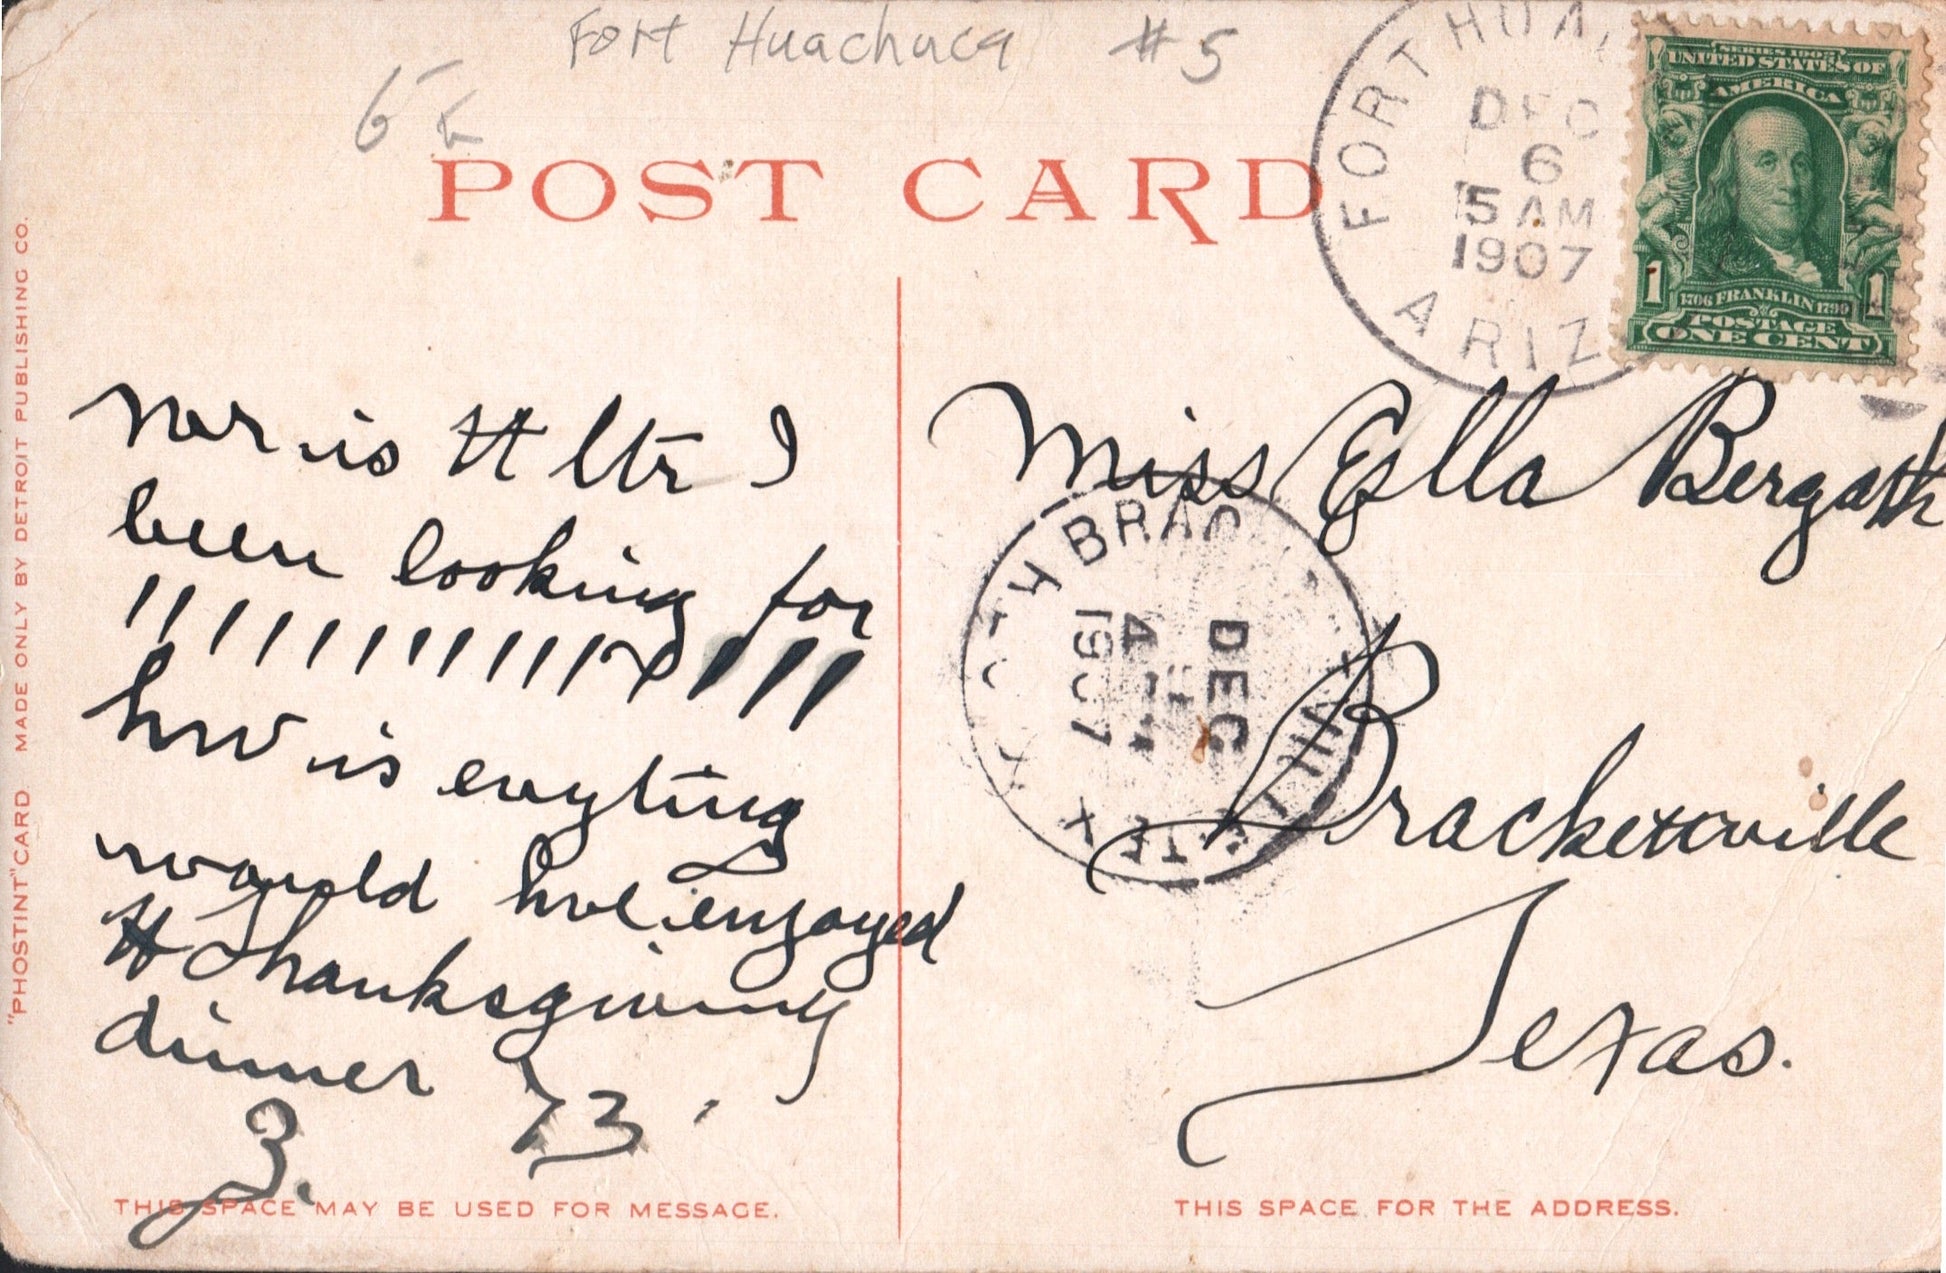 Fort Huachuca #5
POST CARD
FORT HUA
DEC
6
5 AM
1907
ARIZ
SERIES 1902
UNITED STATES OF
AMERICA
1 1
1706 FRANKLIN 1790
POSTAGE
ONE CENT
wer is tt ltr I
been looking for
!!!!!!!!!!!!!!!!
hw is evryting
would hve enjoyed
tt Thanksgiving
dinner 73.
Z.
Miss Ella Bergath
Brackettville
Texas.
BRAC
VILLE
TEX
DEC
1907
"PHOSTINT" CARD MADE ONLY BY DETROIT PUBLISHING CO.
THIS SPACE MAY BE USED FOR MESSAGE.
THIS SPACE FOR THE ADDRESS.